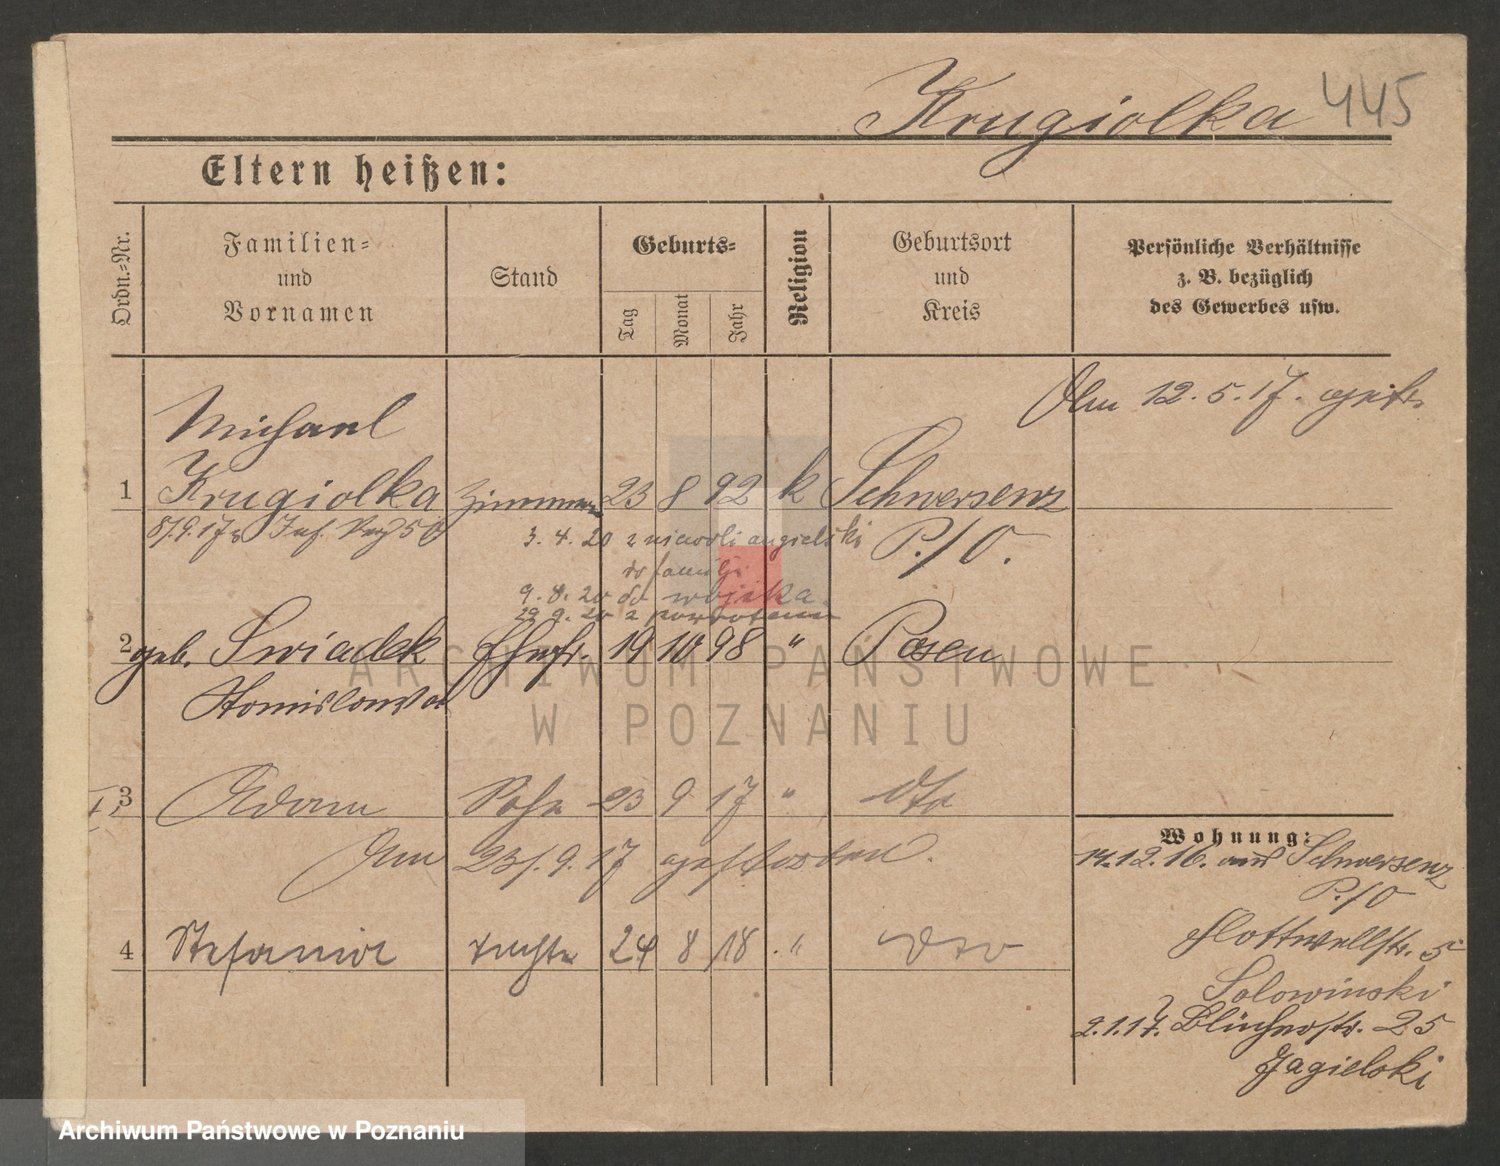 Krugiolka 445
Eltern heißen:
Ordn.-Nr.
Familien-
und
Vornamen
Stand
Geburts-
Tag
Monat
Jahr
Religion
Geburtsort
und
Kreis
Persönliche Verhältnisse
z. B. bezüglich
des Gewerbes usw.
12.5.17.
Michael
1 Krugiolka 23 8 92 k Schwersenz
P./O.
3.4.20 z niewoli angielski
do familji
9.8.20 do wojska
29.9.20 z powrotem
2 geb. Swiadek Ehefr. 19 10 98 " Posen
Stanislawa
3 Adam Sohn 23 9 17 " dto
Am 23/.9.17 gestorben.
4 Stefania tochter 24 8 18 " dto
Wohnung:
14.12.16. aus Schwersenz
P./O
Flottwellstr. 5
Solowinski
2.1.17. Blücherstr. 25
Jagielski
ARCHIWUM PAŃSTWOWE
W POZNANIU
Archiwum Państwowe w Poznaniu